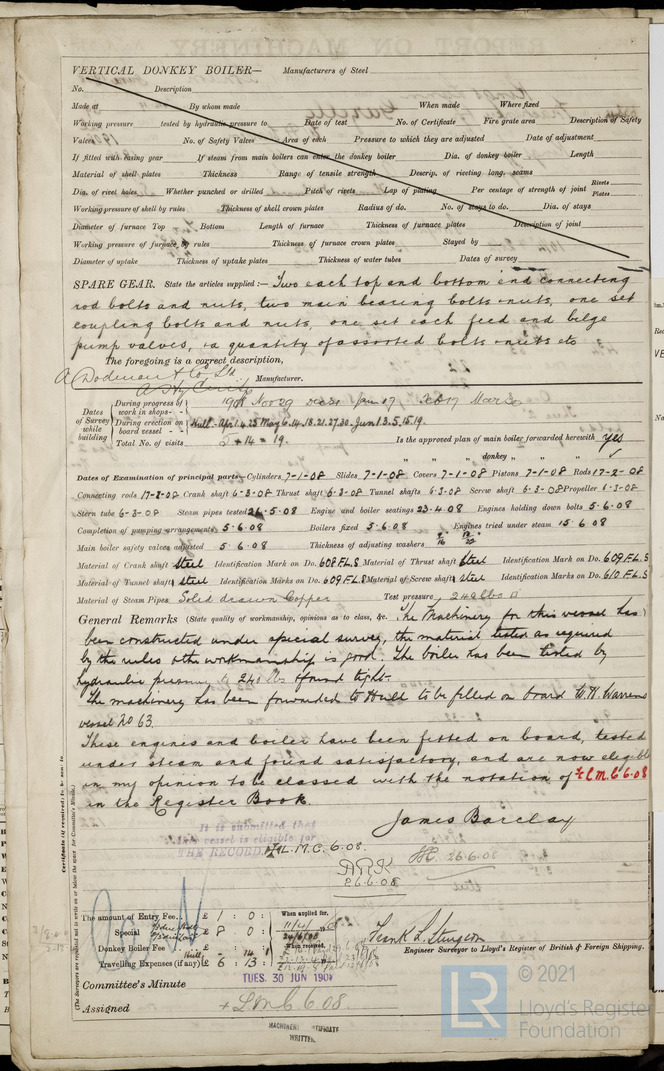 VERTICAL DONKEY BOILER— Manufacturers of Steel
No. Description
Made at By whom made When made Where fixed
Working pressure tested by hydraulic pressure to Date of test No. of Certificate Fire grate area Description of Safety
Valves No. of Safety Valves Area of each Pressure to which they are adjusted Date of adjustment
If fitted with easing gear If steam from main boilers can enter the donkey boiler Dia. of donkey boiler Length
Material of shell plates Thickness Range of tensile strength Descrip. of riveting long. seams
Dia. of rivet holes Whether punched or drilled Pitch of rivets Lap of plating Per centage of strength of joint Rivets Plates
Working pressure of shell by rules Thickness of shell crown plates Radius of do. No. of stays to do. Dia. of stays
Diameter of furnace Top Bottom Length of furnace Thickness of furnace plates Description of joint
Working pressure of furnace by rules Thickness of furnace crown plates Stayed by
Diameter of uptake Thickness of uptake plates Thickness of water tubes Dates of survey
SPARE GEAR. State the articles supplied:— Two each top and bottom end connecting
rod bolts and nuts, two main bearing bolts & nuts, one set
coupling bolts and nuts, one set each feed and bilge
pump valves, & a quantity of assorted bolts & nuts etc
The foregoing is a correct description,
Manufacturer.
Dates of Survey while building
During progress of work in shops- - 1907 Nov 29 Dec 31 Jan 17 Feb 17 Mar 30
During erection on board vessel - - - Hull. Apr 4. 23 May 6. 14. 18. 21. 27. 30. Jun 1. 3. 5. 15. 19.
Total No. of visits 5 + 14 = 19. Is the approved plan of main boiler forwarded herewith Yes
" " " donkey " " "
Dates of Examination of principal parts—Cylinders 7-1-08 Slides 7-1-08 Covers 7-1-08 Pistons 7-1-08 Rods 17-2-08
Connecting rods 17-2-08 Crank shaft 6-3-08 Thrust shaft 6-3-08 Tunnel shafts 6-3-08 Screw shaft 6-3-08 Propeller 6-3-08
Stern tube 6-3-08 Steam pipes tested 26-5-08 Engine and boiler seatings 23-4-08 Engines holding down bolts 5-6-08
Completion of pumping arrangements 5.6.08 Boilers fixed 5.6.08 Engines tried under steam 15.6.08
Main boiler safety valves adjusted 5.6.08 Thickness of adjusting washers
Material of Crank shaft Steel Identification Mark on Do. 608 F.L.S Material of Thrust shaft Steel Identification Mark on Do. 609 F.L.S
Material of Tunnel shafts steel Identification Marks on Do. 609 F.L.S Material of Screw shafts steel Identification Marks on Do. 610 F.L.S
Material of Steam Pipes Solid drawn Copper Test pressure 240 lbs
General Remarks (State quality of workmanship, opinions as to class, &c. The Machinery for this vessel has
been constructed under special survey, the material tested as required
by the rules & the workmanship is good. The boiler has been tested by
hydraulic pressure to 240 lbs & found tight.
The machinery has been forwarded to Hull to be fitted on board W. H. Warrens
vessel No 63.
These engines and boiler have been fitted on board, tested
under steam and found satisfactory, and are now eligible
in my opinion to be classed with the notation of + L.M.C 6.08
in the Register Book.
James Barclay
It is submitted that
this vessel is eligible for
THE RECORD. + L.M.C. 6.08.
26.6.08
26.6.08
The amount of Entry Fee. . £ 1 : 0 : When applied for,
Special £ 8 : 0 :
Donkey Boiler Fee £ : : When received,
Travelling Expenses (if any) £ 6 : 13 :
Frank L. Sturgeon
Engineer Surveyor to Lloyd's Register of British & Foreign Shipping.
Committee's Minute TUES. 30 JUN 1908
Assigned + L.M.C 6.08.
MACHINERY CERTIFICATE
WRITTEN.
Certificate (if required) to be sent to
(The Surveyors are requested not to write on or below the space for Committee's Minute.)
LR
© 2021
Lloyd's Register
Foundation